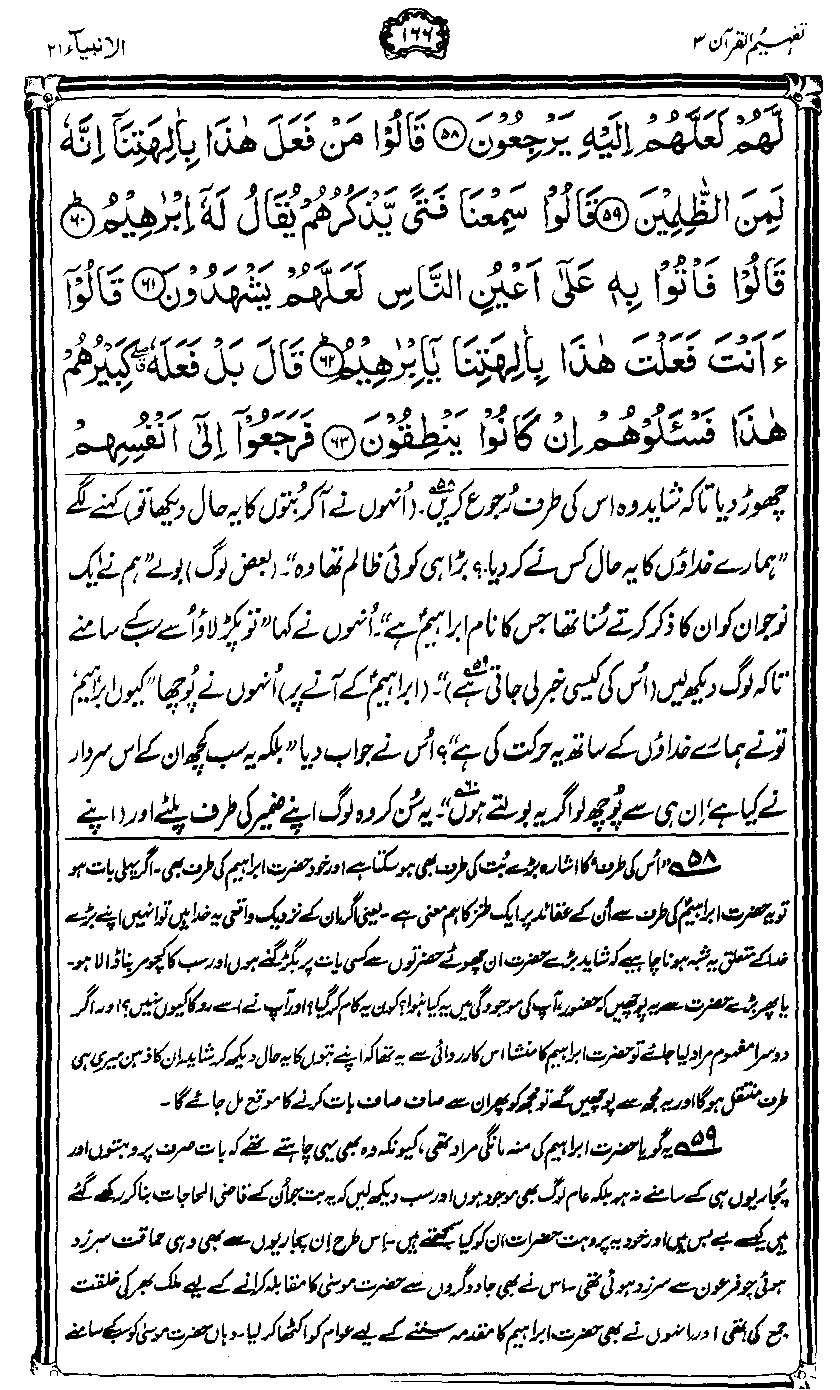 تفہیم القرآن ۳
۱۶۶
الانبیآء ۲۱
لَّهُمْ لَعَلَّهُمْ اِلَيْهِ يَرْجِعُوْنَ ﴿۵۸﴾ قَالُوْا مَنْ فَعَلَ هٰذَا بِاٰلِهَتِنَاۤ اِنَّهٗ
لَمِنَ الظّٰلِمِيْنَ ﴿۵۹﴾ قَالُوْا سَمِعْنَا فَتًى يَّذْكُرُهُمْ يُقَالُ لَهٗۤ اِبْرٰهِيْمُ ﴿۶۰﴾ؕ
قَالُوْا فَاْتُوْا بِهٖ عَلٰۤى اَعْيُنِ النَّاسِ لَعَلَّهُمْ يَشْهَدُوْنَ ﴿۶۱﴾ قَالُوْۤا
ءَاَنْتَ فَعَلْتَ هٰذَا بِاٰلِهَتِنَا يٰۤاِبْرٰهِيْمُ ﴿۶۲﴾ؕ قَالَ بَلْ فَعَلَهٗ ۖۗ كَبِيْرُهُمْ
هٰذَا فَسْـَٔلُوْهُمْ اِنْ كَانُوْا يَنْطِقُوْنَ ﴿۶۳﴾ فَرَجَعُوْۤا اِلٰۤى اَنْفُسِهِمْ
چھوڑ دیا تاکہ شاید وہ اس کی طرف رُجوع کریں۵۸۔ (اُنہوں نے آ کر بُتوں کا یہ حال دیکھا تو) کہنے لگے
”ہمارے خداؤں کا یہ حال کس نے کر دیا؟ بڑا ہی کوئی ظالم تھا وہ“۔ (بعض لوگ) بولے ”ہم نے ایک
نوجوان کو ان کا ذکر کرتے سُنا تھا جس کا نام ابراہیمؑ ہے“۔ اُنہوں نے کہا ”تو پکڑ لاؤ اُسے سب کے سامنے
تاکہ لوگ دیکھ لیں (اُس کی کیسی خبر لی جاتی ہے)“۵۹۔ (ابراہیمؑ کے آنے پر) اُنہوں نے پُوچھا ”کیوں ابراہیمؑ،
تو نے ہمارے خداؤں کے ساتھ یہ حرکت کی ہے“؟ اُس نے جواب دیا ”بلکہ یہ سب کچھ ان کے اس سردار
نے کیا ہے، اِن ہی سے پُوچھ لو اگر یہ بولتے ہوں“۶۰۔ یہ سُن کر وہ لوگ اپنے ضمیر کی طرف پلٹے اور (اپنے
۵۸ ”اُس کی طرف“ کا اشارہ بڑے بُت کی طرف بھی ہو سکتا ہے اور خود حضرت ابراہیمؑ کی طرف بھی۔ اگر پہلی بات ہو
تو یہ حضرت ابراہیمؑ کی طرف سے اُن کے عقائد پر ایک طنز کا ہم معنی ہے۔ یعنی اگر ان کے نزدیک واقعی یہ خدا ہیں تو انہیں اپنے بڑے
خدا کے متعلق یہ شبہ ہونا چاہیے کہ شاید بڑے حضرت ان چھوٹے حضرتوں سے کسی بات پر بگڑ گئے ہوں اور سب کا کچومر بنا ڈالا ہو۔
یا پھر بڑے حضرت سے یہ پوچھیں کہ حضور، آپ کی موجودگی میں یہ کیا ہوا؟ کون یہ کام کر گیا؟ اور آپ نے اسے روکا کیوں نہیں؟ اور اگر
دوسرا مفہوم مراد لیا جائے تو حضرت ابراہیم کا منشا اس کارروائی سے یہ تھا کہ اپنے بتوں کا یہ حال دیکھ کر شاید اِن کا ذہن میری ہی
طرف منتقل ہو گا اور یہ مجھ سے پوچھیں گے تو مجھ کو پھر ان سے صاف صاف بات کرنے کا موقع مل جائے گا۔
۵۹ یہ گویا حضرت ابراہیم کی منہ مانگی مراد تھی، کیونکہ وہ بھی یہی چاہتے تھے کہ بات صرف پروہتوں اور
پجاریوں ہی کے سامنے نہ ہو بلکہ عام لوگ بھی موجود ہوں اور سب دیکھ لیں کہ یہ بت جو اُن کے قاضی الحاجات بنا کر رکھے گئے
ہیں کیسے بے بس ہیں اور خود یہ پروہت حضرات ان کو کیا سمجھتے ہیں۔ اِس طرح اِن پجاریوں سے بھی وہی حماقت سرزد
ہوئی جو فرعون سے سرزد ہوئی تھی۔ اس نے بھی جادوگروں سے حضرت موسیٰ کا مقابلہ کرانے کے لیے ملک بھر کی خلقت
جمع کی تھی اور انہوں نے بھی حضرت ابراہیم کا مقدمہ سننے کے لیے عوام کو اکٹھا کر لیا۔ وہاں حضرت موسیٰ کو سب کے سامنے